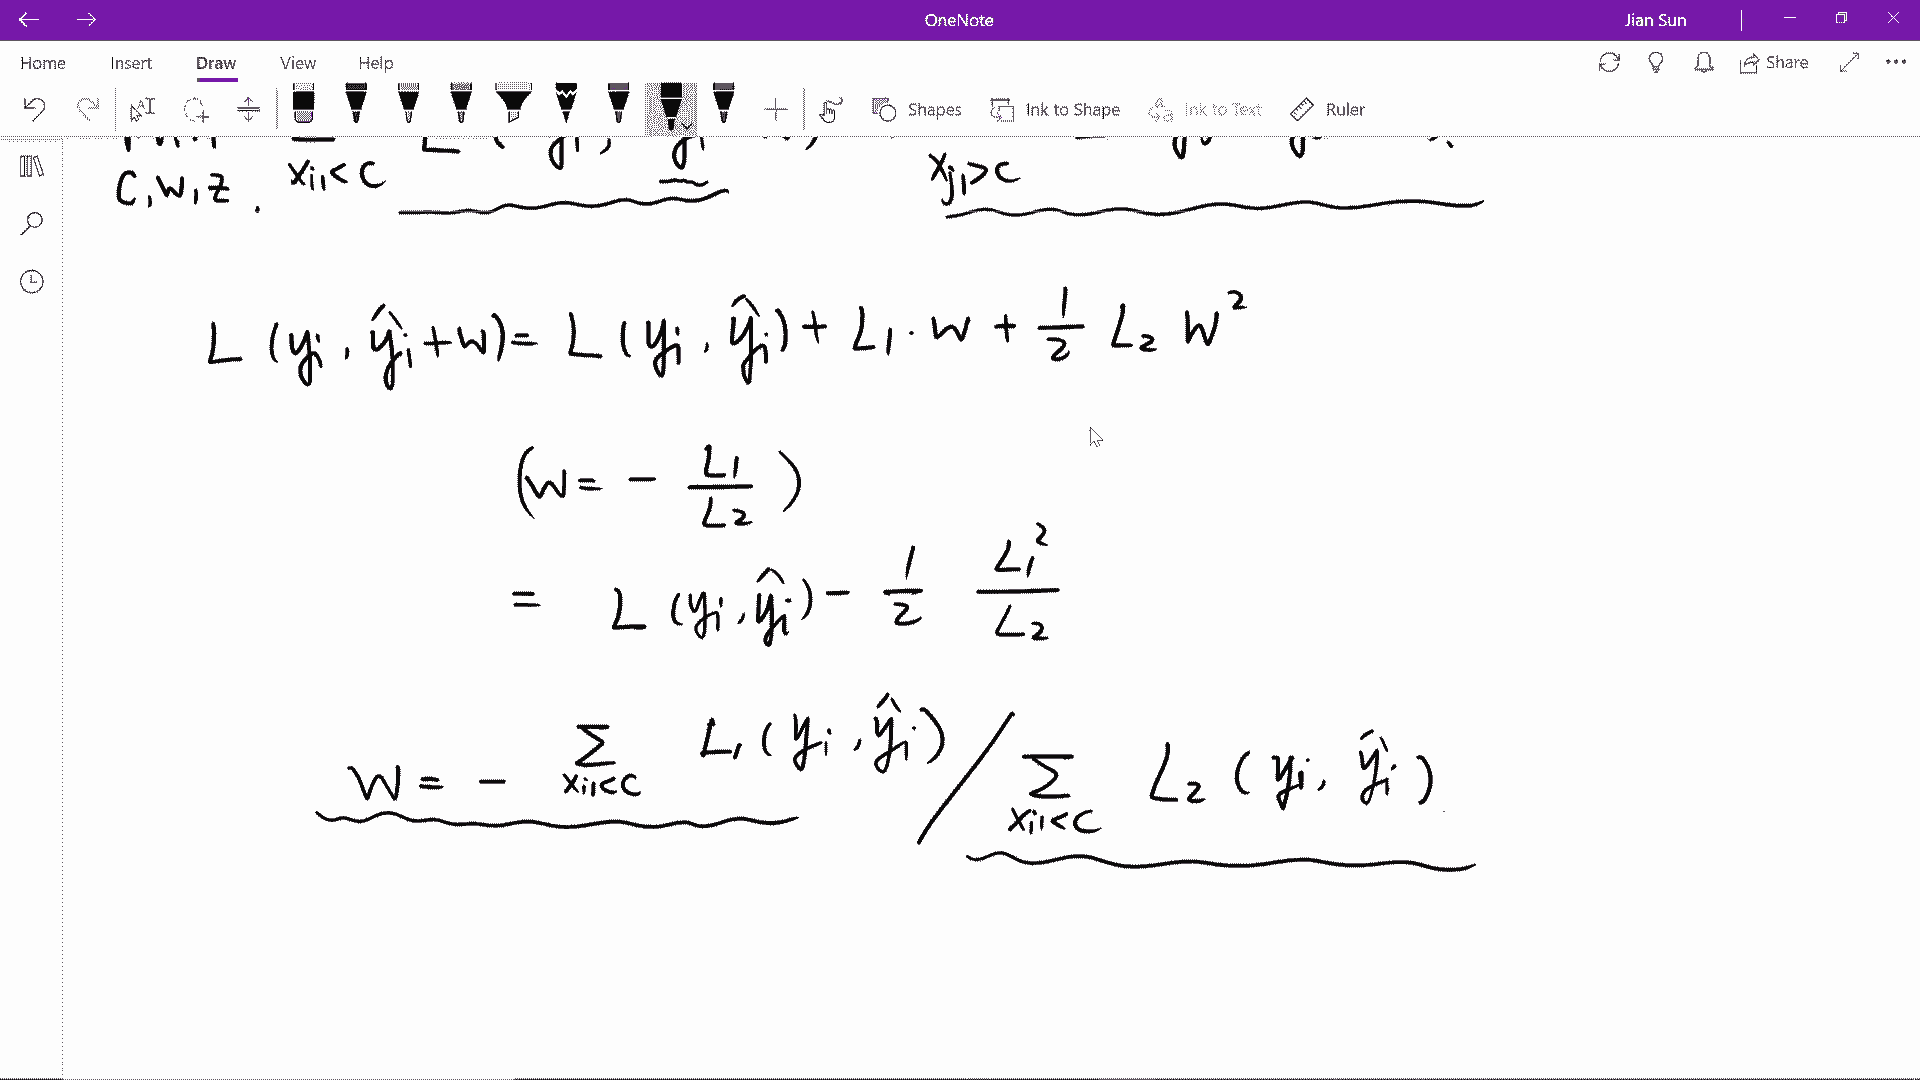 OneNote
Jian Sun
Home Insert Draw View Help
Share
Shapes Ink to Shape Ink to Text Ruler
C, W, Z . x_{i1}<C x_{j1}>C
L (y_i , ŷ_i + w) = L (y_i , ŷ_i) + L_1 · w + 1/2 L_2 W^2
(w = - L_1/L_2 )
= L (y_i , ŷ_i) - 1/2 L_1^2/L_2
W = - Σ_{x_{i1}<C} L_1 (y_i , ŷ_i) / Σ_{x_{i1}<C} L_2 (y_i , ŷ_i)